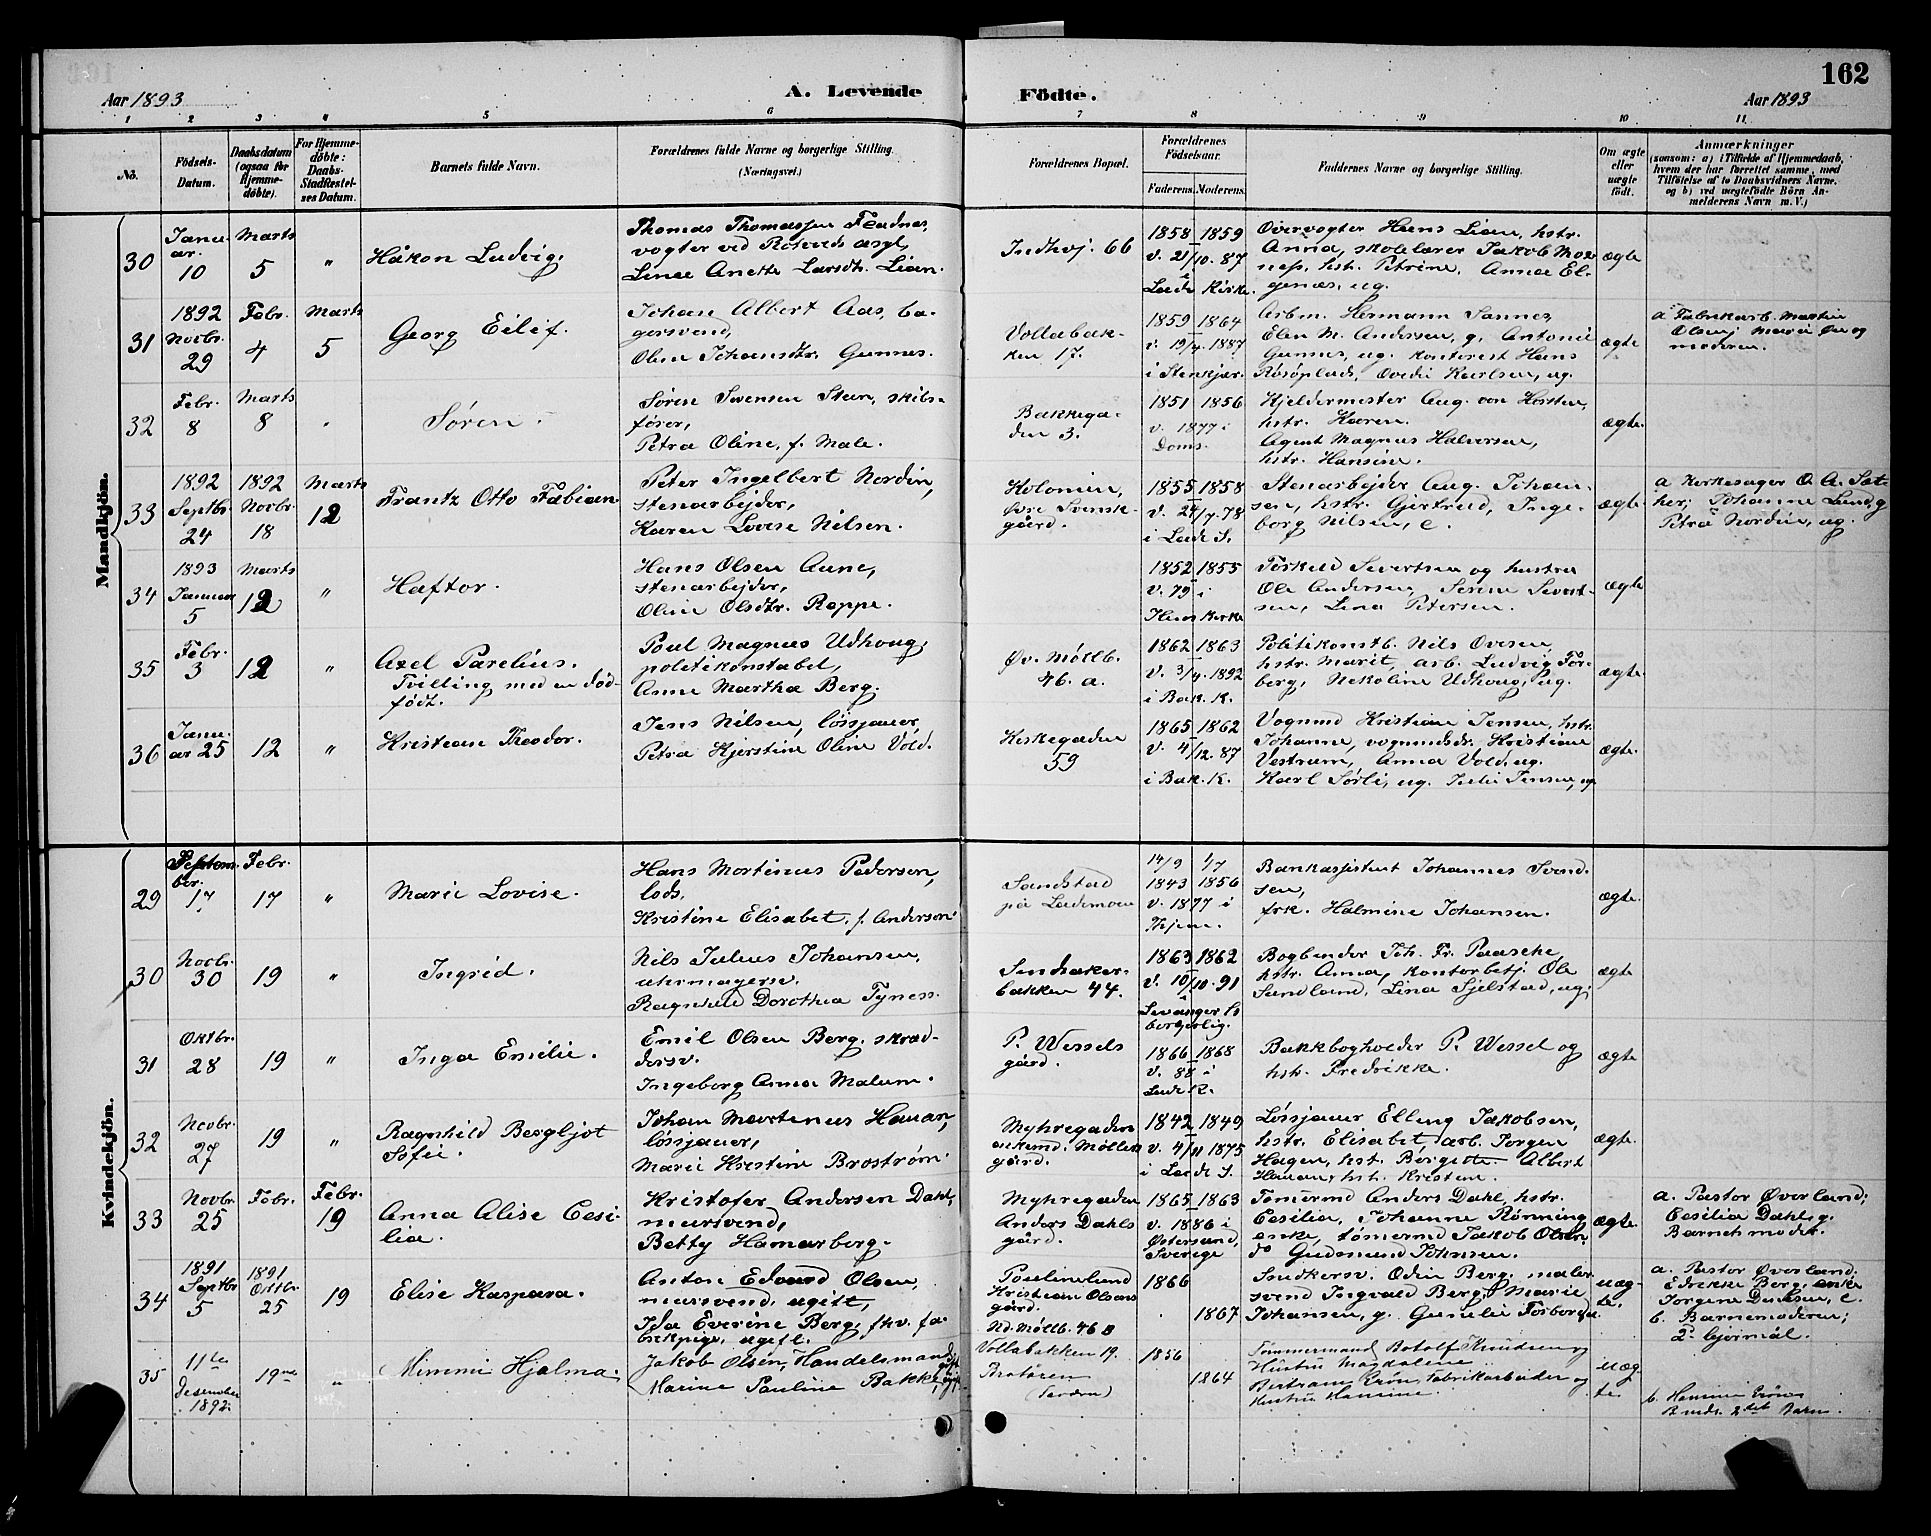 162
Aar 1893
A. Levende
Födte.
Aar 1893
1 2 3 4 5 6 7 8 9 10 11
No.
Födsels-Datum.
Daabsdatum (ogsaa for Hjemme-döbte).
For Hjemme-döbte: Daabs-Stadfæstel-ses Datum.
Barnets fulde Navn.
Forældrenes fulde Navne og borgerlige Stilling.
(Næringsvei.)
Forældrenes Bopæl.
Forældrenes Födselsaar.
Faderens. Moderens.
Faddernes Navne og borgerlige Stilling.
Om ægte eller uægte födt.
Anmærkninger
(saasom: a) i Tilfælde af Hjemmedaab,
hvem der har forrettet samme, med
Tilföielse af to Daabsvidners Navne.
og b) ved uægtefödte Börn An-
melderens Navn m. V.)
Mandkjön.
30
Janu-
ar
10
Marts
5
"
Håkon Ludvig.
Thomas Thomassen Fladnes,
vogter ved Rotvolds asyl,
Lina Anette Larsdt. Lian.
Indhvj. 66
1858 1859
v. 21/10. 87
i
Lade Kirke.
Overvogter Hans Lian, hstr.
Anna, skolelærer Jakob Mox-
ness, hst. Petrine, Anna El-
genæs, ug.
ægte
31
1892
Novbr.
29
Febr.
4
Marts
5
Georg Eilif.
Johan Albert Aas, ba-
gersvend,
Oline Johansdtr. Gunnes.
Vollabak-
ken 17.
1859 1864
v. 19/4. 1887
i Stenkjær.
Arbm. Hermann Sannes,
Elen M. Andersen, g. Antonie
Gunnes, ug. kontorist Hans
Rosöplads, Ovedie Karlsen, ug.
ægte
a Fabrikarb. Martin
Olsen; Marie Øu og
moderen.
32
Febr.
8
Marts
8
"
Søren.
Sören Svensen Steen, skibs-
förer,
Petra Oline, f. Male.
Bakkega-
den 3.
1851 1856
v. 1877 i
Doms.
Kjeldermester Aug. von Hersten,
hstr. Karen.
Agent Magnus Halvorsen,
hstr. Hansine.
ægte.
33
1892
Septbr.
24
1892
Novbr.
18
Marts
12
Frantz Otto Fabian
Peter Ingelbert Nordin,
stenarbejder,
Karen Lovise Nilsen.
Kolonien,
Øvre Svensk-
gård.
1855 1858
v. 24/7. 78
i Lade S.
Stenarbejder Aug. Johan-
sen, hstr. Gjertrud, Inge-
borg Nilsen, e.
ægte.
a Kirkesager O. A. Sæt-
her; Johanne Lund, g
Petra Nordin, ug.
34
1893
Januar
5
Marts
12
"
Haftor.
Hans Olsen Aune,
stenarbejder,
Oline Olsdtr. Reppe.
1852 1855
v. 79 i
Hens kirke
Torkild Sivertsen og hustru
Ole Andersen, Serine Sivert-
sen, Lina Petersen.
ægte
35
Febr.
3
12
"
Axel Parelius.
Tvilling med en död-
födt.
Paul Magnus Udhoug,
politikonstabel,
Anne Martha Berg.
Øv. Möllb.
46. a.
1862 1863
v. 3/4. 1892
i Bak. K.
Politikonstb. Nils Ovesen,
hstr. Marit, arb. Ludvig For-
berg, Nekoline Udhoug, ug.
ægte.
36
Janu-
ar 25
12
"
Kristian Theodor.
Jens Nilsen, løssjauer,
Petra Kjerstine Oline Vold.
Kirkegaden
59
1865 1862
v. 4/12. 87
i Bak. K.
Vognmd Kristian Jensen, hstr.
Johanne, vognmdsdr. Kristiane
Vestrum, Anna Vold, ug.
Karl Sörli, ug. Julie Jensen, ug
ægte.
Kvindekjön.
29
Septem-
ber.
17
Febr.
17
"
Marie Lovise.
Hans Mortinus Pedersen,
lods,
Kristine Elisabet, f. Anderson.
Sandstad
på Lademoen
14/9 1/7
1843 1856
v. 1877 i
Hjem.
Bankassistent Johannes Svend-
sen,
frk. Halmine Johansen.
ægte.
30
Novbr.
30
19
"
Ingrid.
Nils Julius Johansen,
uhrmagersv.
Ragnhild Dorothea Tyness.
Sindsaker-
bakken 44.
1863 1862
v. 10/10. 91
i
Levanger
borgerlig.
Bogbinder Joh. Fr. Paasche,
hstr. Anna, kontorbetj. Ole
Sundland, Lina Sjelstad, ug.
ægte
31
Oktbr.
28
19
"
Inga Emilie.
Emil Olsen Berg. skræd-
dersv.
Ingeborg Anna Malum.
P. Wessels
gård.
1866 1868
v. 88 i
Lade K.
Bakkbogholder P. Wessel og
hst. Fredrikke.
ægte
32
Novbr.
27
19
"
Ragnhild Bergljot
Sofie.
Johan Martinus Haman,
løssjauer,
Marie Kristine Broström.
Myhregaden
enkemd. Möllers
gård.
1842 1849
v. 4/11 1875
i Lade S.
Løssjauer Elling Jakobsen,
hstr. Elisabet, arb. Jörgen
Hagen, hst. Borgette. Albert
Haman, hst. Kristine.
ægte.
33
Novbr.
25
Febr.
Febr.
19
Anna Alise Cesi-
lia.
Kristofer Andersen Dahl,
mursvend,
Betty Hamarborg.
Myhregaden
Anders Dahls
gård.
1865 1863
v. 1886 i
Östersund,
Sverige
Tömermd Anders Dahl, hstr.
Cesilia, Johanne Rönning
enke, tömermd Jakob Olsen
do Gudmund Johnsen.
ægte.
a. Pastor Överland;
Cesilia Dahl, g.
Barnets moder.
34
1891
Septbr
5
1891
Oktbr.
25
19
Elise Kaspara.
Anton Edvard Olsen,
mursvend, ugift,
Ida Everine Berg, fhv. fa-
brikpige, ugift.
Paulinelund
Kristian Olsens
gård.
Nd. Möllb. 46 B
1866
1867
Snedkersv. Odin Berg, maler
svend Ingvald Berg, Marie
Johansen, g. Gunelie Forbord
uæg-
te.
a. Pastor Överland.
Edrikke Berg, enke
Jörgine Davidsen, e.
b. Barnemoderen;
2. lejermål.
35
11te
Desember
1892.
19de
"
Mimmi Hjalma
Jakob Olsén, Handelsmand, gift
Marine Pauline Bakke, ugift
Vollabakken 19.
Bratören
1856
1864
Tømmermand Botolf Knudsen og
Hustru Magdalene
Bertram Erön Fabrikarbeider og
Hustru Hansine.
uæg
te.
b. Hansine Erön
Bmds. 2det Barn.